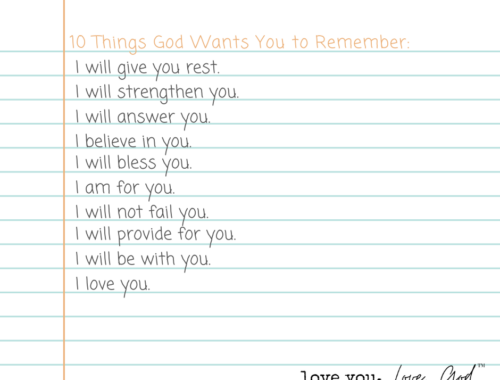 10 Things God Wants You to Remember:
I will give you rest.
I will strengthen you.
I will answer you.
I believe in you.
I will bless you.
I am for you.
I will not fail you.
I will provide for you.
I will be with you.
I love you.
love you. Love, God™